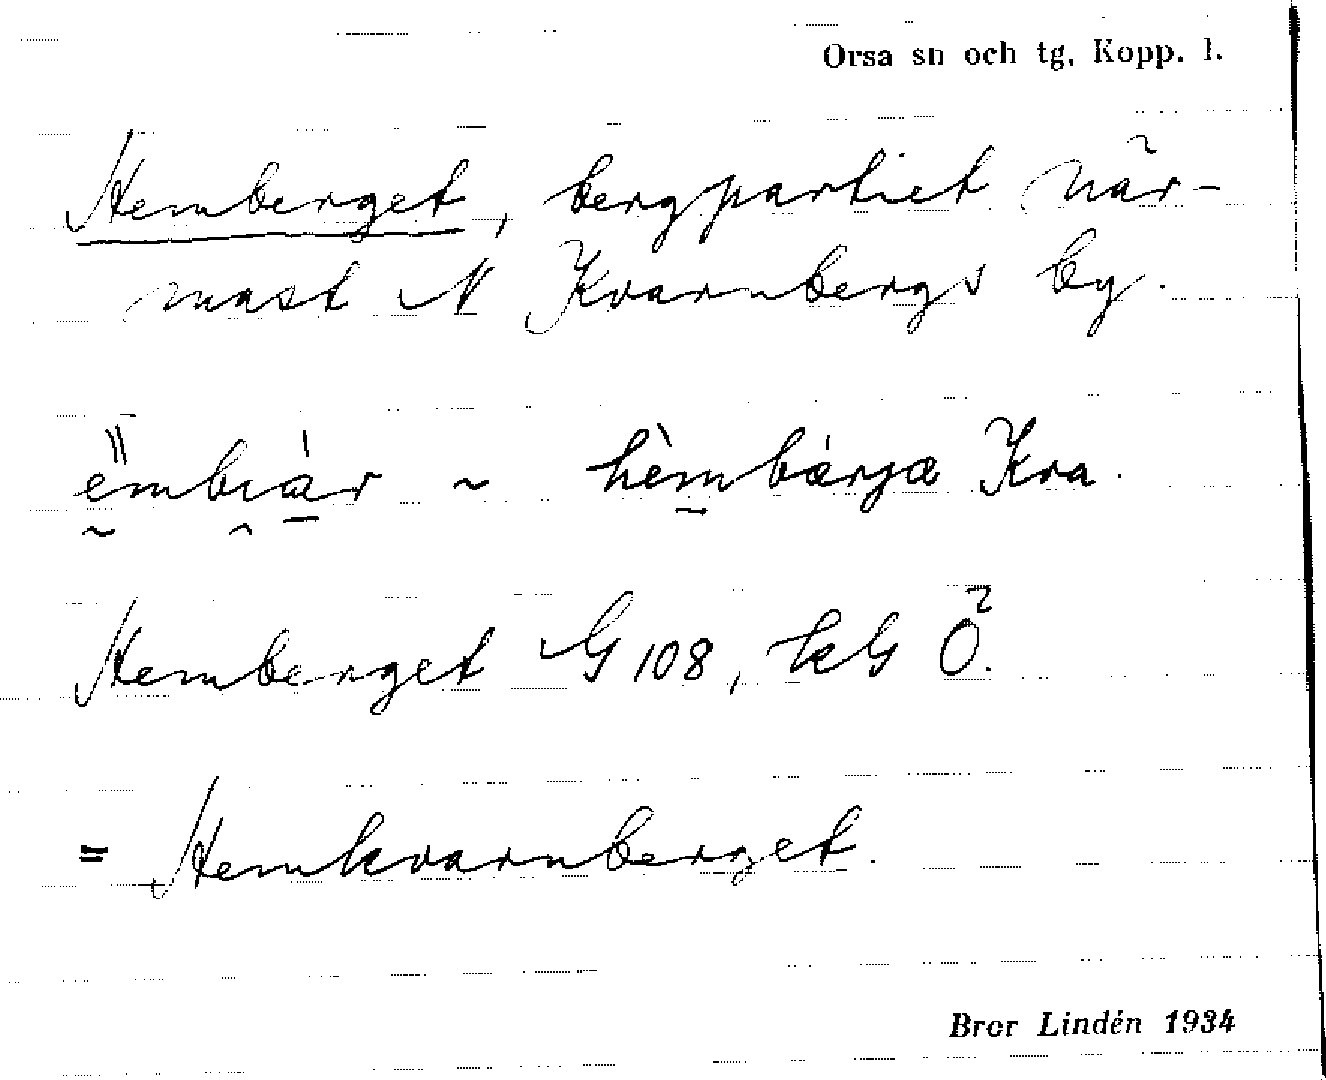 Orsa sn och tg, Kopp. l.
Hemberget, bergpartiet när-
mast N Kvarnbergs by.
~ hèmbærjæ Kra.
Hemberget G 108, kG Ö.
= Hemkvarnberget.
Bror Lindén 1934